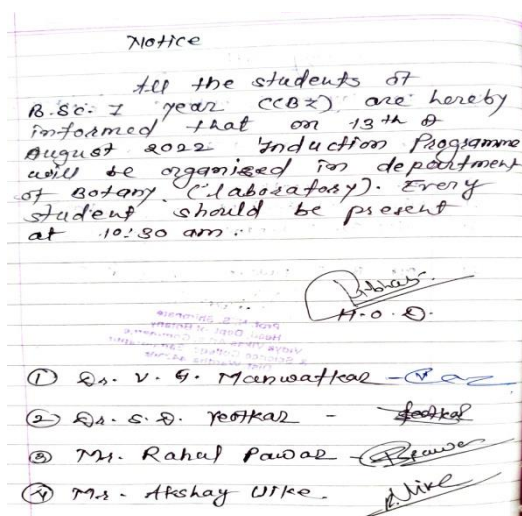 Notice
All the students of
B.Sc. I year (CBZ) are hereby
informed that on 13th
August 2022 Induction Programme
will be organised in department
of Botany (laboratory). Every
student should be present
at 10:30 am.
H.O.D.
① Dr. V. G. Manwatkar -
② Dr. S. D. Yeotkar - Yeotkar
③ Mr. Rahul Pawar - Pawar
④ Mr. Akshay Uike. A.Uike